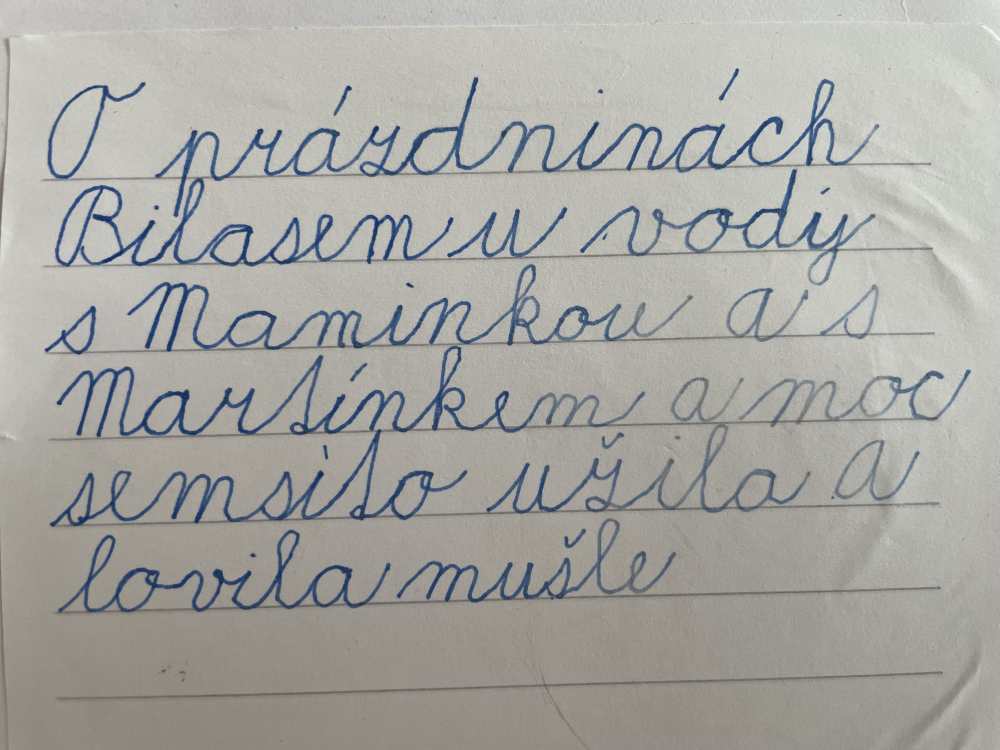 O prázdninách
Bilasem u vody
s Maminkou a s
Martínkem a moc
semsito užila a
lovila mušle